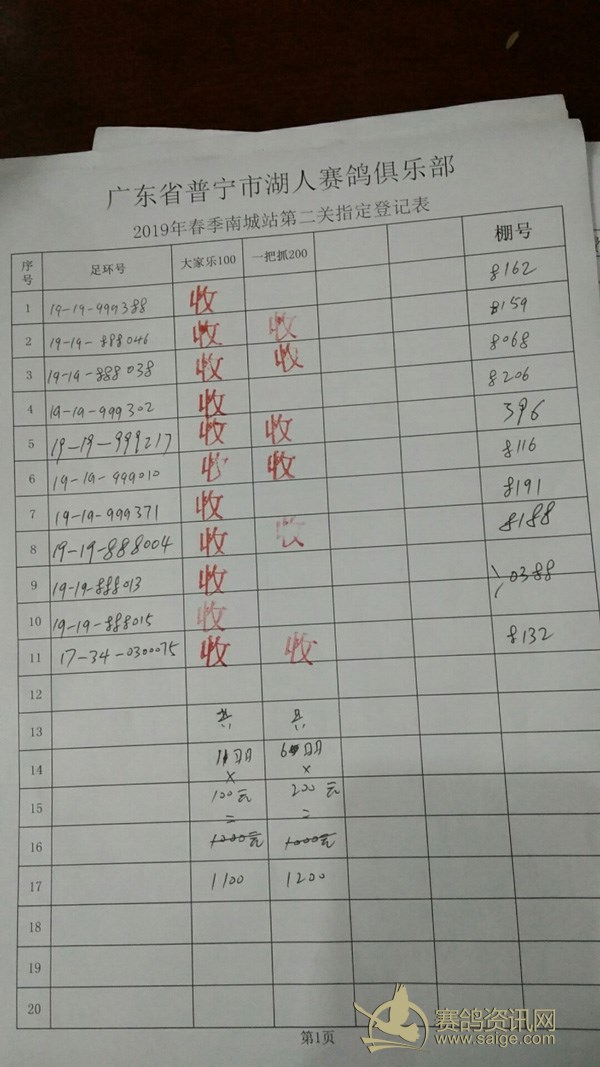 广东省普宁市湖人赛鸽俱乐部
2019年春季南城站第二关指定登记表
序号 足环号 大家乐100 一把抓200 棚号
1 19-19-999388 收 8162
2 19-19-888046 收 收 8159
3 19-19-888038 收 收 8068
4 19-19-999302 收 8206
5 19-19-999217 收 收 396
6 19-19-999010 收 收 8116
7 19-19-999371 收 8191
8 19-19-888004 收 收 8188
9 19-19-888013 收 0388
10 19-19-888015 收
11 17-34-0300075 收 收 8132
12
13 共 共
14 11 6
× ×
15 100元 200元
= =
16 1000元 1000元
17 1100 1200
18
19
20
第1页
赛鸽资讯网
www.saige.com